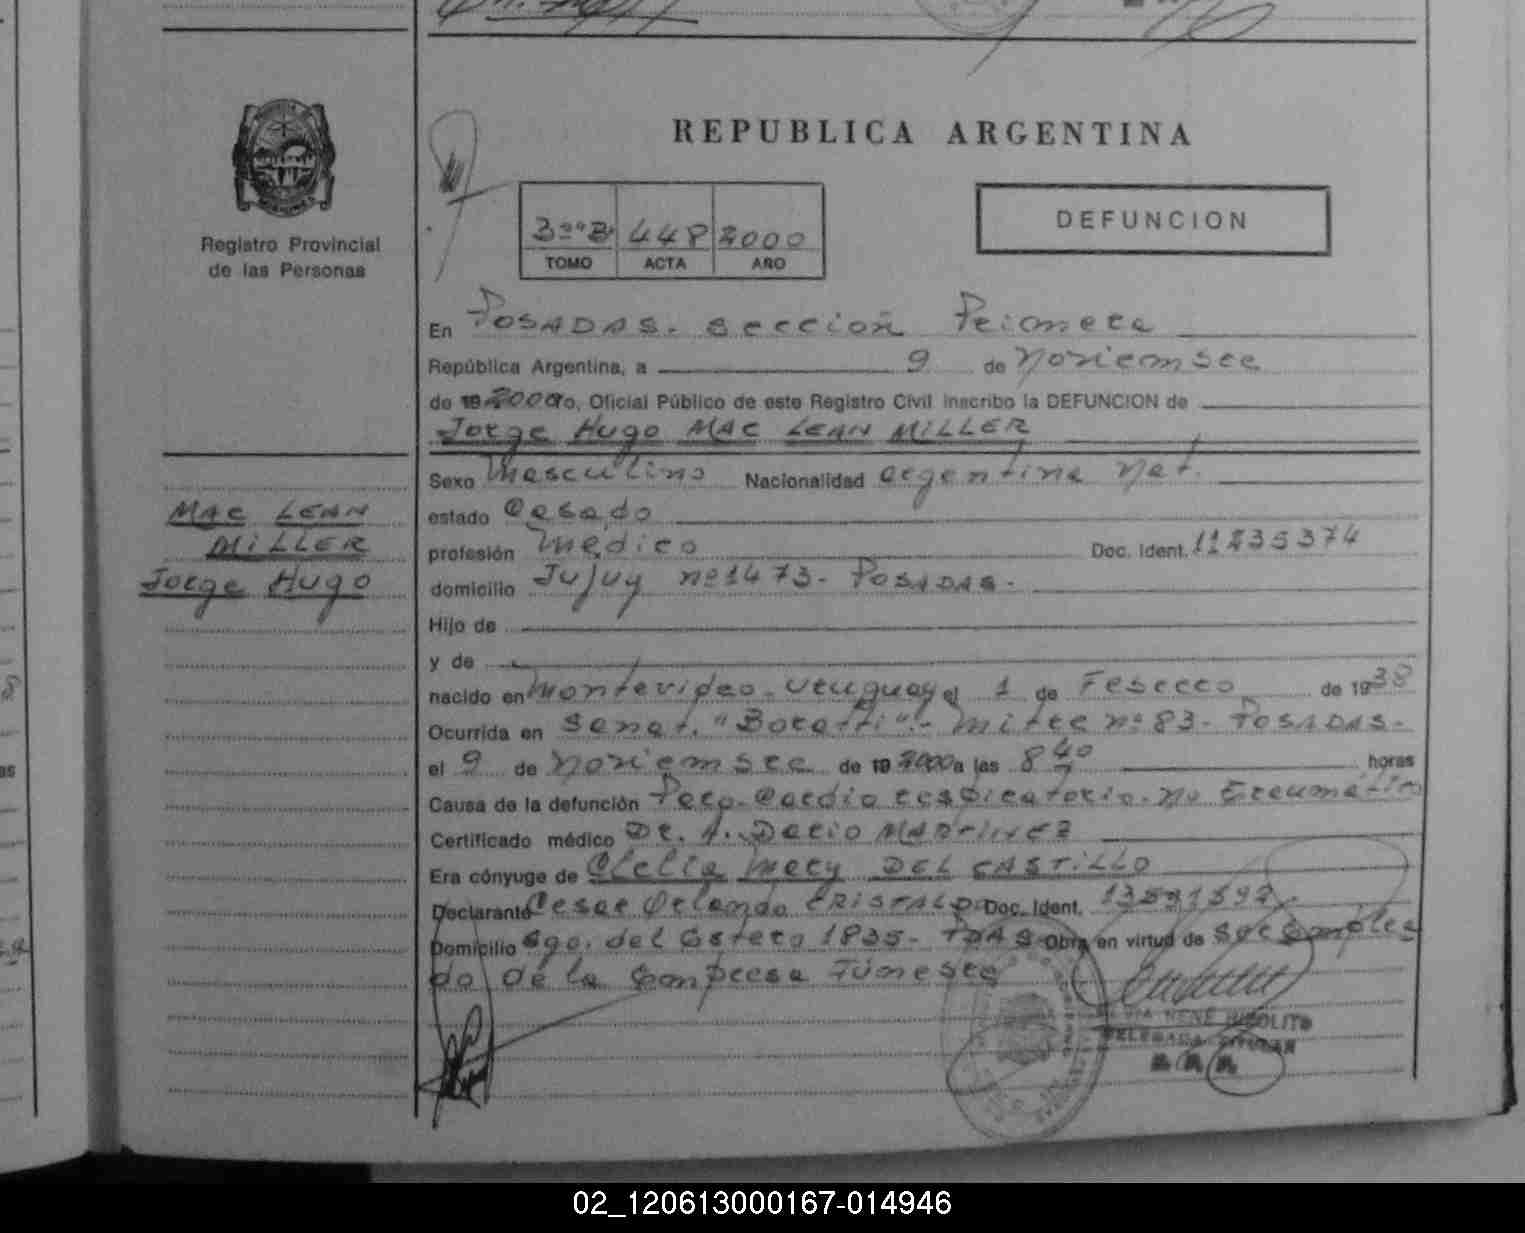 REPUBLICA ARGENTINA
Registro Provincial
de las Personas
3º"B" 448 2000
TOMO ACTA AÑO
DEFUNCION
En POSADAS. Sección Primera
República Argentina, a 9 de Noviembre
de 19 2000 yo, Oficial Público de este Registro Civil inscribo la DEFUNCION de
Jorge Hugo MAC LEAN MILLER
MAC LEAN
MILLER
Jorge Hugo
Sexo Masculino Nacionalidad argentina nat.
estado Casado
profesión Medico Doc. Ident. 11235374
domicilio Jujuy nº 1473- POSADAS-
Hijo de
y de
nacido en Montevideo. Uruguay el 1 de Febrero de 1938
Ocurrida en Sanat. "Boratti"- Mitre nº 83- POSADAS-
el 9 de Noviembre de 19 2000 a las 8 40 horas
Causa de la defunción Paro-Cardio respiratorio-no traumático
Certificado médico Dr. A. Dario MARTINEZ
Era cónyuge de Clelia Mary DEL CASTILLO
Declarante Cesar Orlando CRISTALDO Doc. Ident. 13591592
Domicilio Sgo. del Estero 1835- PDAS Obra en virtud de Ser Emplea
do De la Empresa Fúnebre
RENE HIPOLITO
DELEGADA TITULAR
02_120613000167-014946